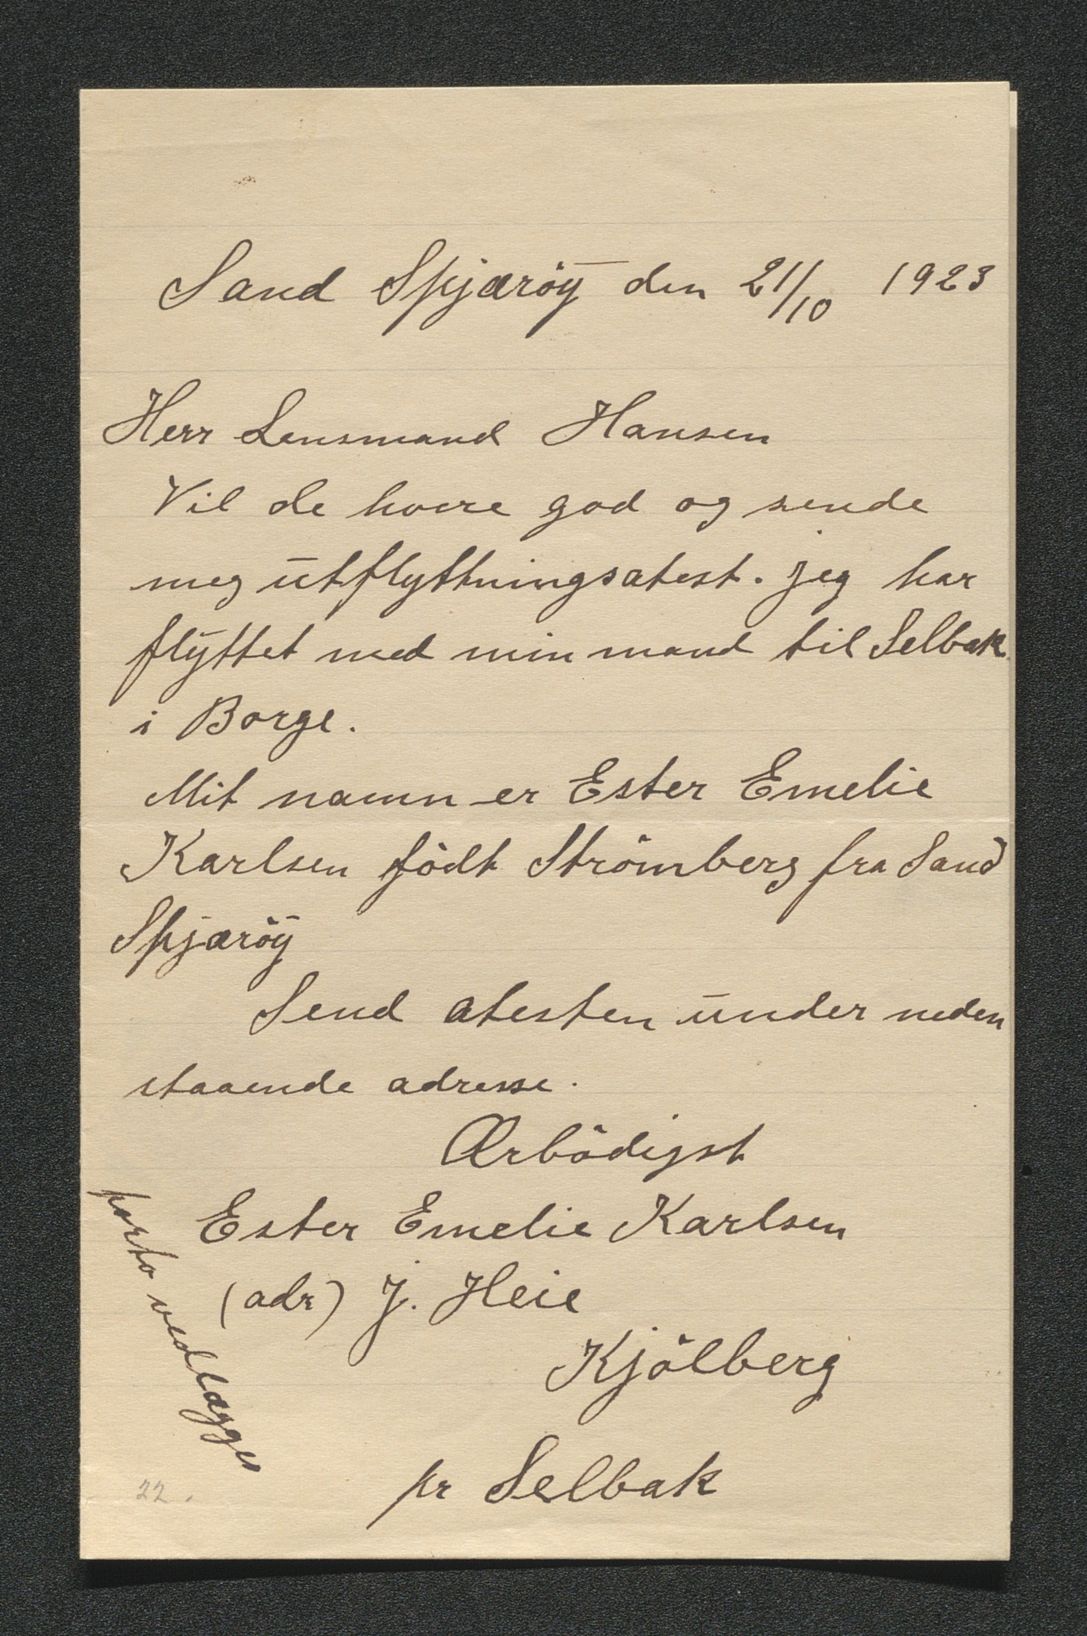 Sand Spjæröy den 21/10 1923
Herr Lensmand Hansen
Vil de være god og sende
meg utflyttningsatest. jeg har
flyttet med min mand til Selbak
i Borge.
Mit namn er Ester Emelie
Karlsen födt Strömberg fra Sand
Spjæröy
Send atesten under neden
staaende adresse.
Ærbödigst
Ester Emelie Karlsen
(adr) J. Heie
Kjölberg
pr Selbak
porto vedlægges
22.